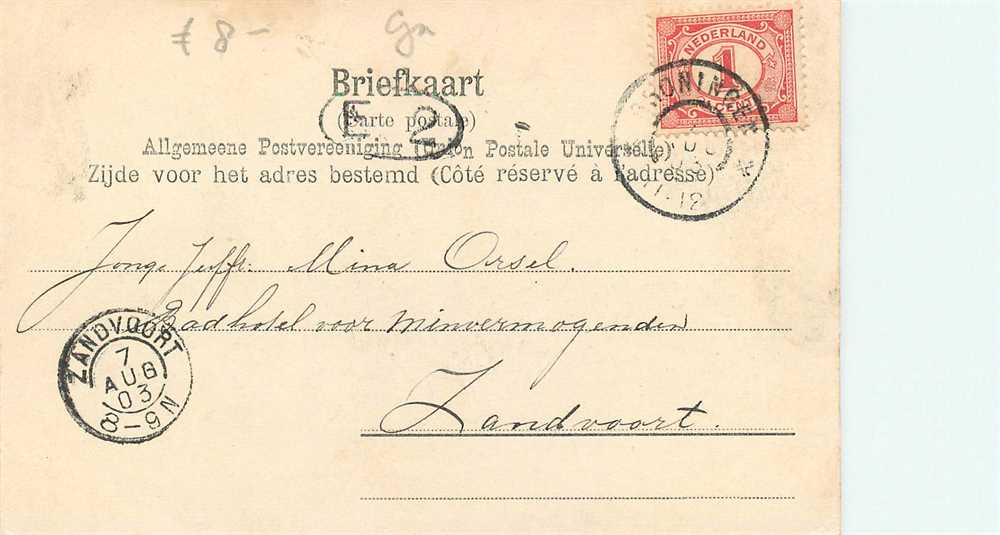 £ 8- Gn
NEDERLAND
1
CENT
Briefkaart
(Carte postale)
E 2
Allgemeene Postvereeniging (Union Postale Universelle)
Zijde voor het adres bestemd (Côté réservé à l'adresse)
GRONINGEN
11-12
Jonge Juffr. Mina Orsel.
Badhotel voor minvermogenden
Zandvoort.
ZANDVOORT
7
AUG
03
8-9N